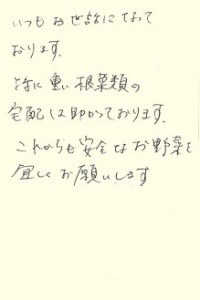 いつもお世話になって
おります。
特に重い根菜類の
宅配は助かっております。
これからも安全なお野菜を
宜しくお願いします